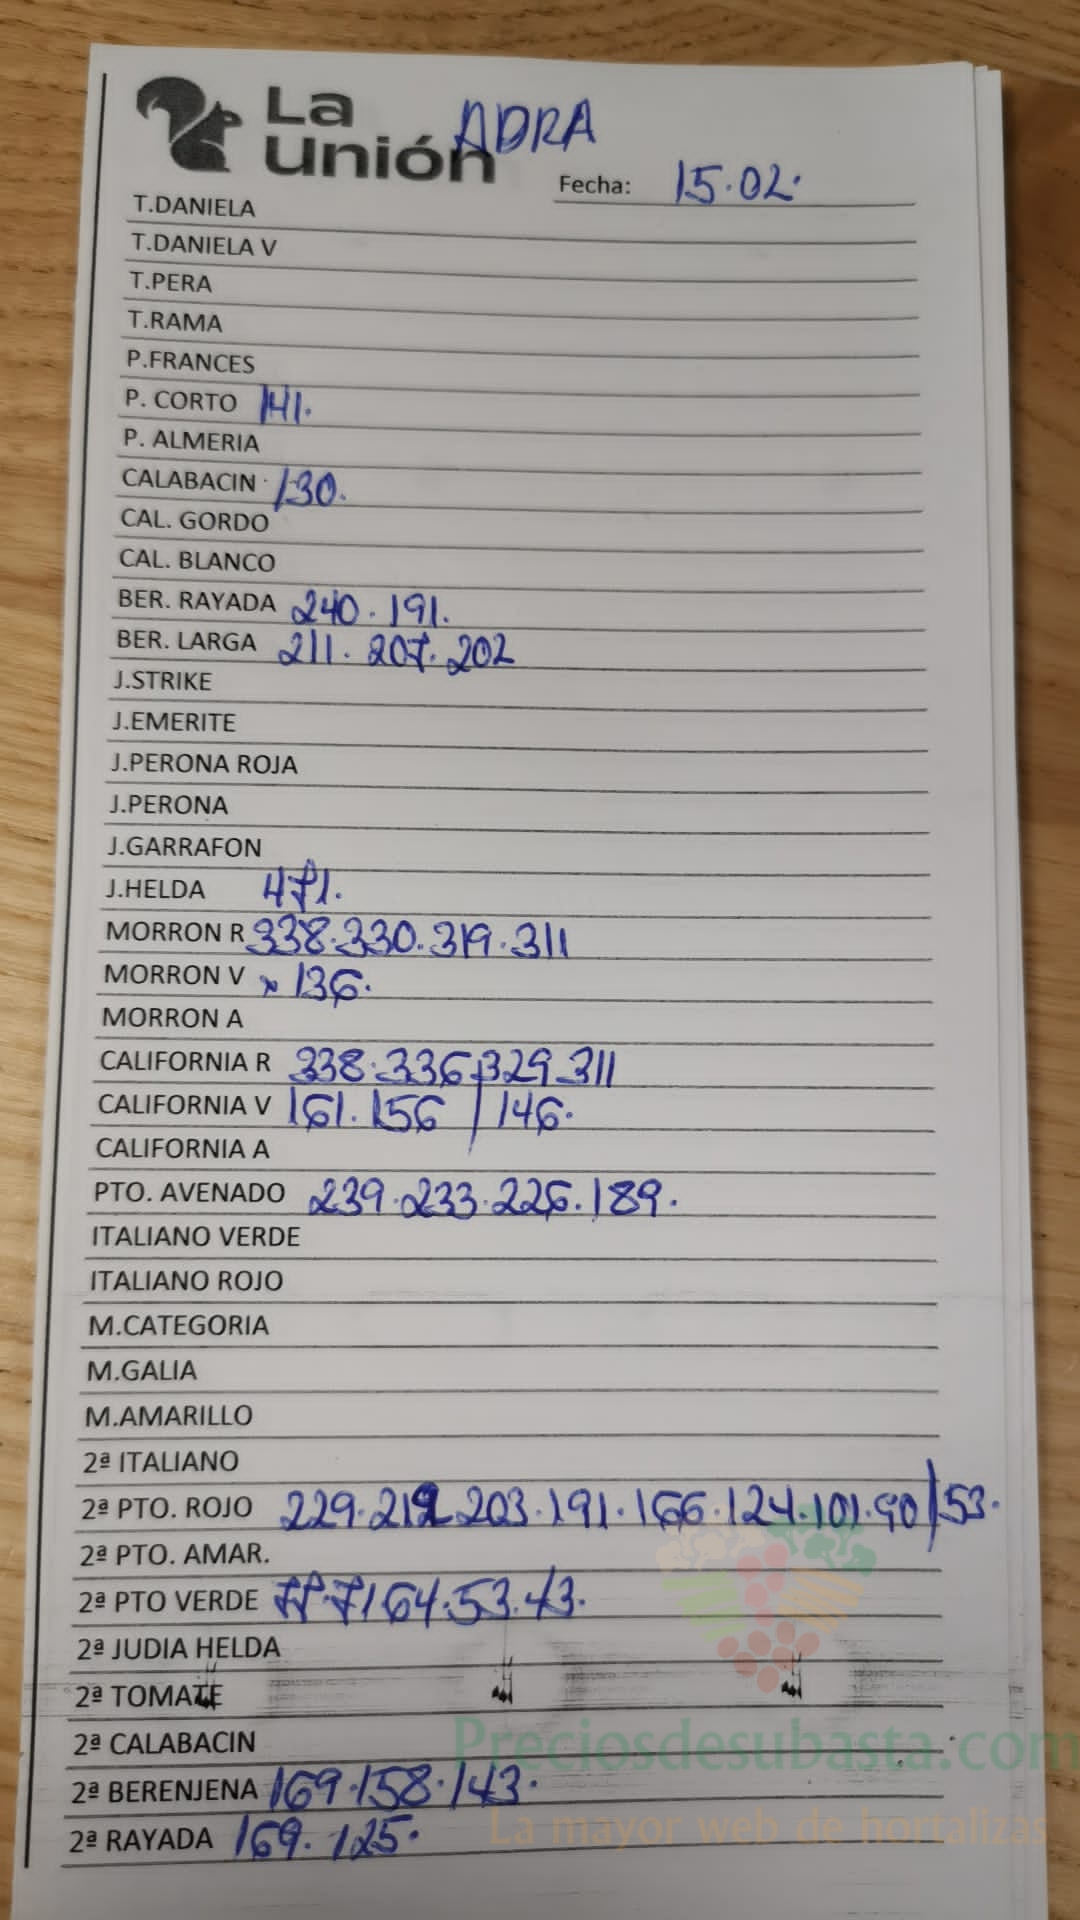 La
Unión ADRA
Fecha: 15.02.
T.DANIELA
T.DANIELA V
T.PERA
T.RAMA
P.FRANCES
P. CORTO 141.
P. ALMERIA
CALABACIN 130.
CAL. GORDO
CAL. BLANCO
BER. RAYADA 240.191.
BER. LARGA 211.207.202
J.STRIKE
J.EMERITE
J.PERONA ROJA
J.PERONA
J.GARRAFON
J.HELDA 471.
MORRON R 338.330.319.311
MORRON V 136.
MORRON A
CALIFORNIA R 338.336/329.311
CALIFORNIA V 161.156/146.
CALIFORNIA A
PTO. AVENADO 239.233.226.189.
ITALIANO VERDE
ITALIANO ROJO
M.CATEGORIA
M.GALIA
M.AMARILLO
2ª ITALIANO
2ª PTO. ROJO 229. 203.191.166.124.101.90/53.
2ª PTO. AMAR.
2ª PTO VERDE 71 64.53.43.
2ª JUDIA HELDA
2ª TOMATE
2ª CALABACIN
Preciosdesubasta.com
2ª BERENJENA 169.158.143.
2ª RAYADA 169.125.
La mayor web de hortalizas